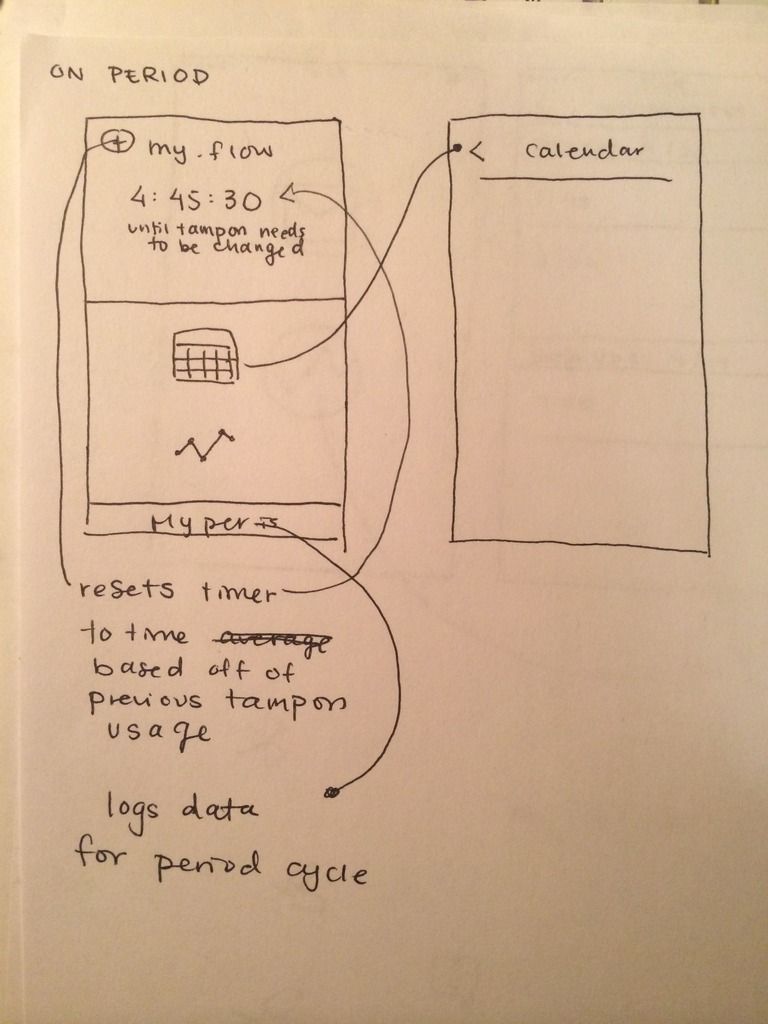 ON PERIOD
my.flow
4:45:30
until tampon needs
to be changed
< Calendar
My per
resets timer
to time average
based off of
previous tampon
usage
logs data
for period cycle